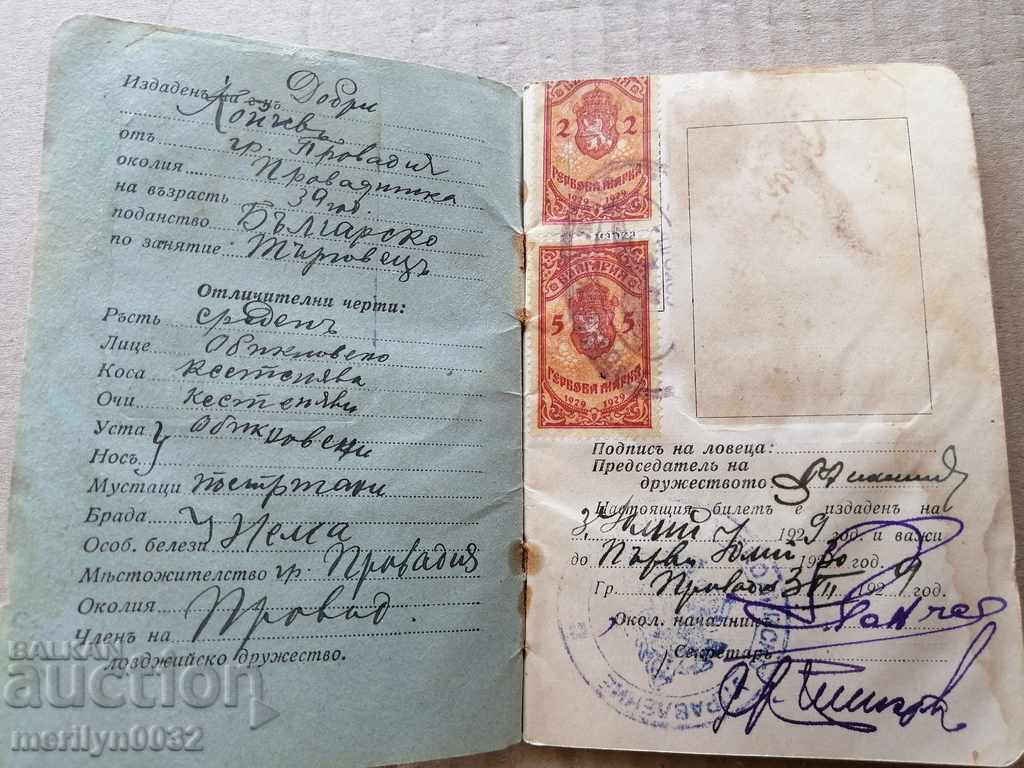 Издаденъ на съ Добри
Койчевъ
отъ гр. Провадия
околия Провадийска
на възрасть 39 год.
поданство Българско
по занятие Търговецъ
Отличителни черти:
Ръсть среденъ
Лице Обикновено
Коса Кестенява
Очи Кестеняви
Уста Обикновени
Носъ
Мустаци
Брада
Особ. белези Нема
Мѣстожителство гр. Провадия
Околия Провад.
Членъ на
ловджийско дружество.
БЪЛГАРИЯ
2 2
ГЕРБОВА МАРКА
1929 1929
БЪЛГАРИЯ
5 5
ГЕРБОВА МАРКА
1929 1929
Подписъ на ловеца:
Председатель на
дружеството
Настоящия билетъ е издаденъ на
3 Юлий 1929 год. и важи
до Първи Юлий 1930 год.
Гр. Провадия 3 VII 1929 год.
Окол. началникъ
Секретаръ
УПРАВЛЕНИЕ
BALKAN
auction
merilyn0032